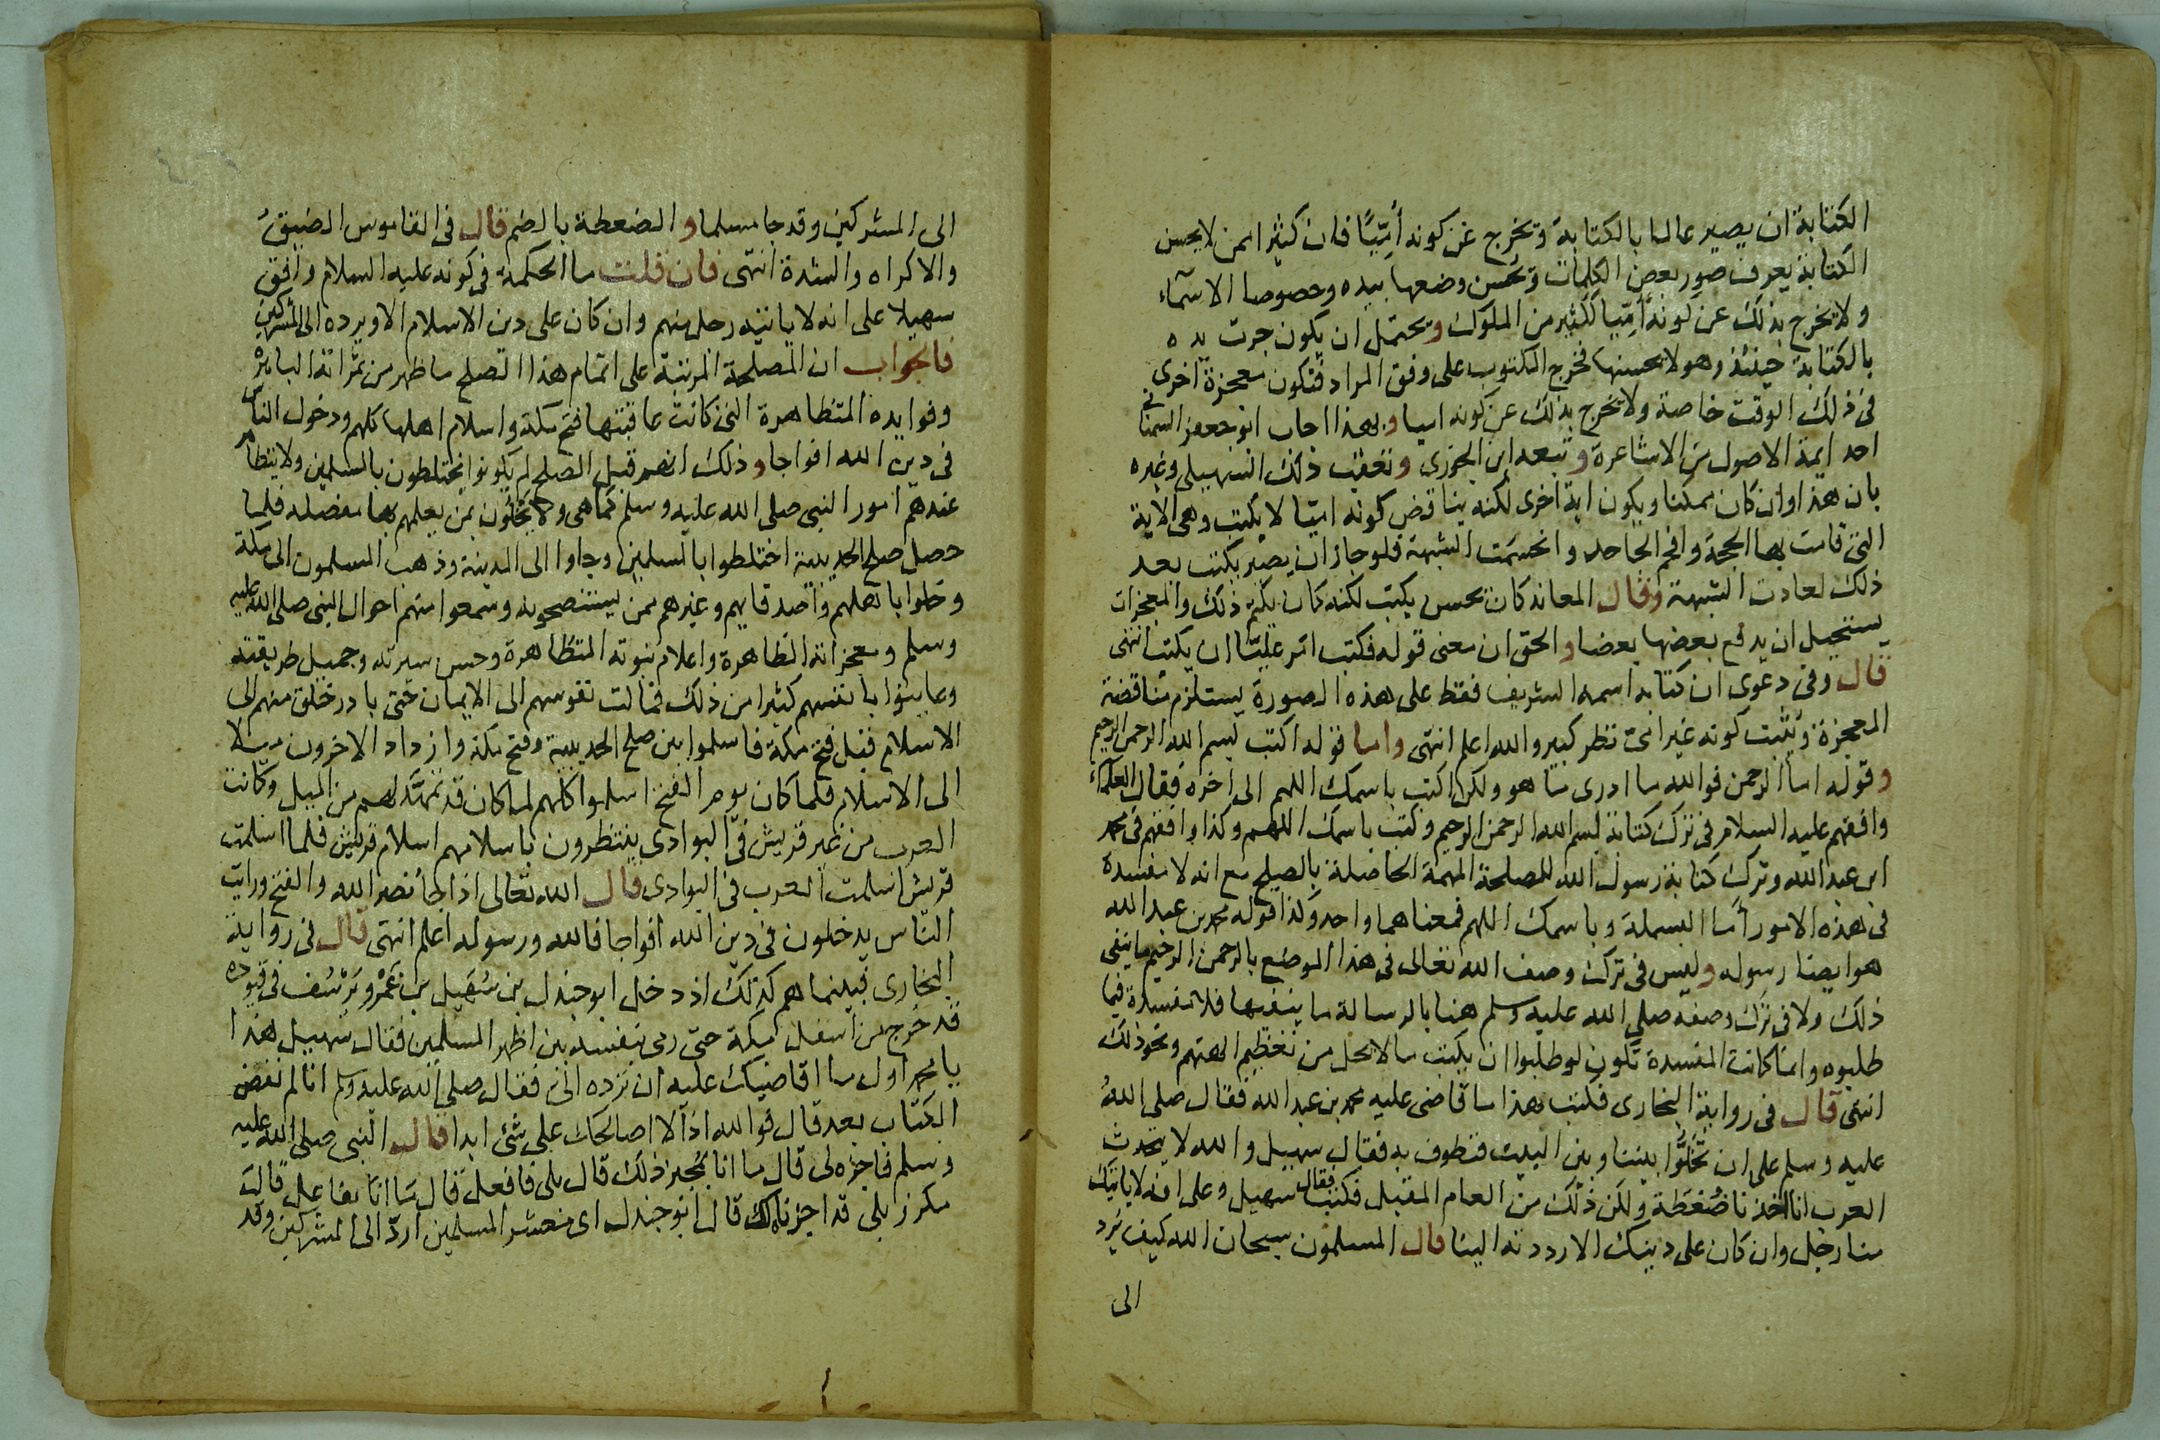 الكتابة ان يصير عالما بالكتابة وتخرج عن كونه أُمِّيًا فان كثيرا ممن لا يحسن
الكتابة يعرف صور بعض الكلمات ويحسن وضعها بيده وخصوصا الاسمآء
ولا يخرج بذلك عن كونه أُمِّيا ككثير من الملوك ويحتمل ان يكون جرت يده
بالكتابة حينئذ وهو لا يحسنها فخرج المكتوب على وفق المراد فتكون معجزة اخرى
فى ذلك الوقت خاصة ولا يخرج بذلك عن كونه اميا وبهذا اجاب ابو جعفر السمنانى
احد ايمة الاصول من الاشاعرة وتبعه ابن الجوزى وتعقب ذلك السهيلى وغيره
بان هذا وان كان ممكنا ويكون اية اخرى لكنه يناقض كونه اميا لا يكتب وهى الاية
التى قامت بها الحجة وافحم الجاحد وانحسمت الشبهة فلو جاز ان يصير يكتب بعد
ذلك لعادت الشبهة وقال المعاند كان يحسن يكتب لكنه كان يكتم ذلك والمعجزات
يستحيل ان يدفع بعضها بعضا والحق ان معنى قوله فكتب امر عليّا ان يكتب انتهى
قال وفى دعوى ان كتابه اسمه الشريف فقط على هذه الصورة يستلزم مناقضة
المعجزة ويثبت كونه غير امى نظر كبير والله اعلم انتهى واما قوله اكتب بسم الله الرحمن الرحيم
وقوله اما الرحمن فوالله ما ادرى ما هو ولكن اكتب باسمك اللهم الى اخره فقال العلماء
وافقهم عليه السلام فى ترك كتابة بسم الله الرحمن الرحيم وكتب باسمك اللهم وكذا وافقهم فى محمد
ابن عبد الله وترك كتابة رسول الله للمصلحة المهمة الحاصلة بالصلح مع انه لا مفسدة
فى هذه الامور أما البسملة وباسمك اللهم فمعناهما واحد وكذا قوله محمد بن عبد الله
هو ايضا رسوله وليس فى ترك وصف الله تعالى فى هذا الموضع بالرحمن الرحيم ما ينفى
ذلك ولا فى ترك وصفه صلى الله عليه وسلم هنا بالرسالة ما ينفيها فلا مفسدة فيما
طلبوه وانما كانت المفسدة تكون لو طلبوا ان يكتب ما لا يحل من تعظيم الهتهم ونحو ذلك
انتهى قال فى رواية البخارى فكتب هذا ما قاضى عليه محمد بن عبد الله فقال صلى الله
عليه وسلم على ان تخلُّوا بيننا وبين البيت فنطوف به فقال سهيل والله لا يتحدث
العرب انا اخذنا ضُغطَة ولكن ذلك من العام المقبل فكتب فقال سهيل وعلى انه لا ياتيك
منا رجل وان كان على دينك الا رددته الينا قال المسلمون سبحان الله كيف يُرد
الى
الى المشركين وقد جا مسلما والضغطة بالضم قال فى القاموس الضيق
والاكراه والشدة انتهى فان قلت ما الحكمة فى كونه عليه السلام وافق
سهيلا على انه لا ياتيه رجل منهم وان كان على دين الاسلام الا ويرده الى المشركين
فالجواب ان المصلحة المرتبة على اتمام هذا الصلح ما ظهر من ثمراته الباهرة
وفوايده المتظاهرة التى كانت عاقبتها فتح مكة واسلام اهلها كلهم ودخول الناس
فى دين الله افواجا وذلك انهم قبل الصلح لم يكونوا يختلطون بالمسلمين ولا يتظاهر
عندهم امور النبى صلى الله عليه وسلم كما هى ولا يخلون بمن يعلمهم بها مفصله فلما
حصل صلح الحديبية اختلطوا بالمسلمين وجاوا الى المدينة وذهب المسلمون الى مكة
وخلوا باهلهم واصدقايهم وغيرهم ممن يستنصحونه وسمعوا منهم احوال النبى صلى الله عليه
وسلم ومعجزاته الظاهرة واعلام نبوته المتظاهرة وحسن سيرته وجميل طريقته
وعاينوا بانفسهم كثيرا من ذلك فمالت نفوسهم الى الايمان حتى بادر خلق منهم الى
الاسلام قبل فتح مكة فاسلموا بين صلح الحديبية وفتح مكة وازداد الاخرون ميلا
الى الاسلام فلما كان يوم الفتح اسلموا كلهم لما كان قد تمهّد لهم من الميل وكانت
العرب من غير قريش فى البوادى ينتظرون باسلامهم اسلام قريش فلما اسلمت
قريش اسلمت العرب فى البوادى قال الله تعالى اذا جا نصر الله والفتح ورايت
الناس يدخلون فى دين الله افواجا فالله ورسوله اعلم انتهى قال فى رواية
البخارى فبينما هم كذلك اذ دخل ابو جندل بن سُهَيل بن عَمْرو يَرْسُف فى قيوده
قد خرج من اسفل مكة حتى رمى بنفسه بين اظهر المسلمين فقال سهيل هذا
يا محمد اول ما اقاضيك عليه ان ترده الىّ فقال صلى الله عليه وسلم انا لم نقض
الكتاب بعد قال فوالله اذًا لا اصالحك على شئ ابدا قال النبى صلى الله عليه
وسلم فاجزه لى قال ما انا بمجيز ذلك قال بلى فافعل قال ما انا بفاعل قال
مكرز بلى قد اجزناه لك قال ابو جندل اى معشر المسلمين اردّ الى المشركين وقد